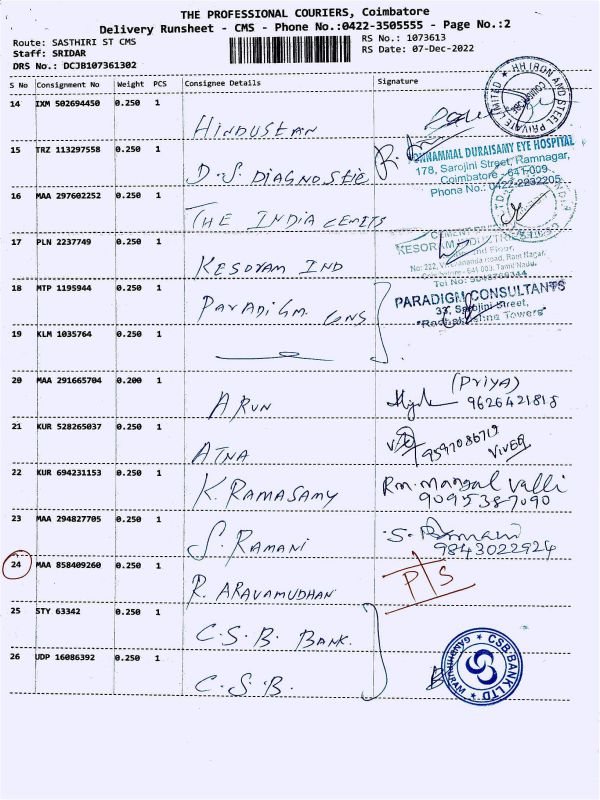 THE PROFESSIONAL COURIERS, Coimbatore
Delivery Runsheet - CMS - Phone No.:0422-3505555 - Page No.:2
Route: SASTHIRI ST CMS
Staff: SRIDAR
DRS No.: DCJB107361302
RS No.: 1073613
RS Date: 07-Dec-2022
S No Consignment No Weight PCS Consignee Details Signature
14 IXM 502694450 0.250 1 HINDUSTAN
HH IRON AND STEEL PRIVATE LIMITED
15 TRZ 113297558 0.250 1 D.S. DIAGNOSTIC
PONNAMMAL DURAISAMY EYE HOSPITAL
178, Sarojini Street, Ramnagar,
Coimbatore - 641 009.
Phone No.: 0422-2232205
16 MAA 297602252 0.250 1 THE INDIA CEMETS
17 PLN 2237749 0.250 1 KESORAM IND
KESORAM
18 MTP 1195944 0.250 1 PARADIGM CONS
PARADIGM CONSULTANTS
33, Sarojini Street,
"Radhakrishna Towers"
19 KLM 1035764 0.250 1
20 MAA 291665704 0.200 1 ARUN (PriyA)
9626421818
21 KUR 528265037 0.250 1 ATNA 9597086719
VIVEQ
22 KUR 694231153 0.250 1 K. RAMASAMY Rm. mangal valli
9095387090
23 MAA 294827705 0.250 1 S. RAMANI S. Ramani
9843022924
24 MAA 858409260 0.250 1 R. ARAVAMUDHAN P/S
25 STY 63342 0.250 1 C.S.B. BANK.
26 UDP 16086392 0.250 1 C.S.B.
CSB BANK LTD
GANDHIPURAM